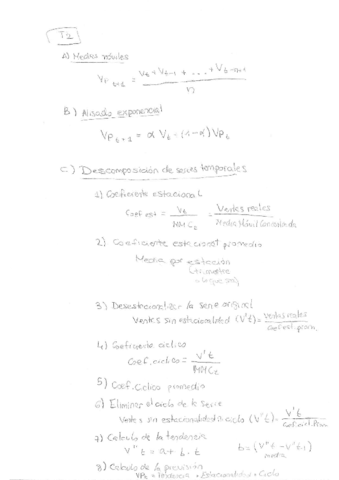 T2
A) Medias móviles
Vp t+1 = Vt + Vt-1 + ... + Vt-n+1 / n
B) Alisado exponencial
Vp t+1 = α Vt - (1-α) Vpt
C) Descomposición de series temporales
1) Coeficiente estacional
Coef est = Vt / MMC2 = Ventas reales / Ventas Móvil Centrada
2) Coeficiente estacional promedio
Media por estación
3) Desestacionalizar la serie original
Ventas sin estacionalidad (V't) = ventas reales / Coef est. prom.
4) Coeficiente cíclico
Coef. cíclico = V't / MMC2
5) Coef. Cíclico promedio
6) Eliminar el ciclo de la serie
Ventas sin estacionalidad ciclo (V't) = V't / Coef cicl. Prom
7) Calculo de la tendencia
V''t = a + b · t
8) Calculo de la previsión
VPt = Tendencia + Estacionalidad + Ciclo